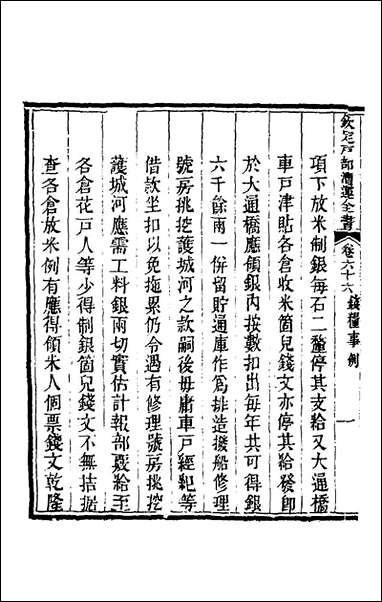 欽定戶部漕運全書 卷六十六 錢糧事例 一
項下放米制銀每石二釐停其支給又大通橋
車戶津貼各倉收米箇兒錢文亦停其給發即
於大通橋應領銀內按數扣出每年共可得銀
六千餘兩一併留貯通庫作爲排造撥船修理
號房挑挖護城河之款嗣後毋庸車戶經紀等
借款坐扣以免拖累仍令遇有修理號房挑挖
護城河應需工料銀兩切實估計報部覈給至
各倉花戶人等少得制銀箇兒錢文不無拮据
查各倉放米例有應得領米人個票錢文乾隆